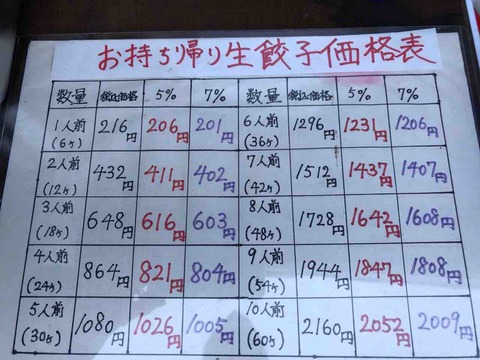 お持ち帰り生餃子価格表
数量 税込価格 5% 7% 数量 税込価格 5% 7%
1人前 (6ヶ) 216円 206円 201円 6人前 (36ヶ) 1296円 1231円 1206円
2人前 (12ヶ) 432円 411円 402円 7人前 (42ヶ) 1512円 1437円 1407円
3人前 (18ヶ) 648円 616円 603円 8人前 (48ヶ) 1728円 1642円 1608円
4人前 (24ヶ) 864円 821円 804円 9人前 (54ヶ) 1944円 1847円 1808円
5人前 (30ヶ) 1080円 1026円 1005円 10人前 (60ヶ) 2160円 2052円 2009円